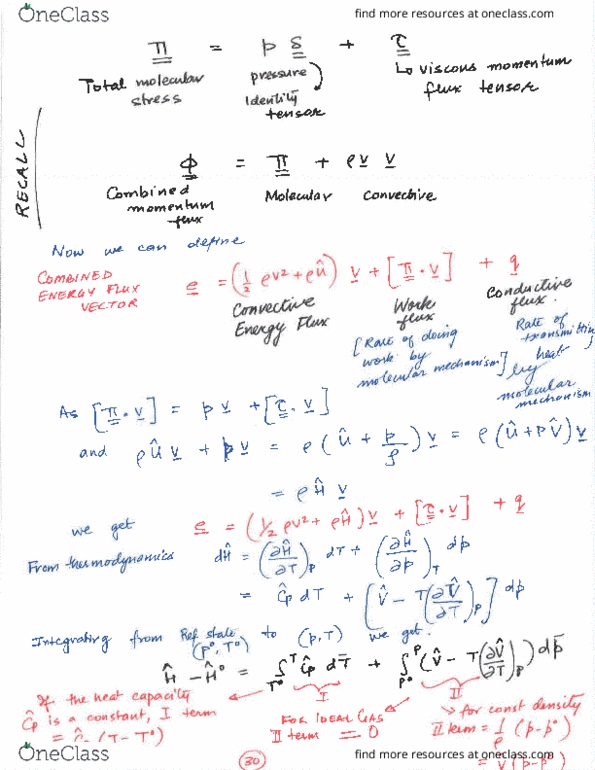 OneClass
find more resources at oneclass.com
π = p δ + τ
Total molecular stress
pressure
Identity tensor
↳ viscous momentum flux tensor
RECALL
ϕ = π + ρ v v
Combined momentum flux
Molecular
Convective
Now we can define
COMBINED ENERGY FLUX VECTOR
e = (1/2 ρv² + ρÛ) v + [π · v] + q
Convective Energy Flux
Work flux
Conductive flux.
[Rate of doing work by molecular mechanism]
Rate of transmitting heat by molecular mechanism
As [π · v] = p v + [τ · v]
and ρ Û v + p v = ρ (Û + p/ρ) v = ρ (Û + p V̂) v
= ρ Ĥ v
we get e = (1/2 ρv² + ρĤ) v + [τ · v] + q
From thermodynamics dĤ = (∂Ĥ/∂T)p dT + (∂Ĥ/∂p)T dp
= Ĉp dT + [V̂ - T(∂V̂/∂T)p] dp
Integrating from Ref state (p°, T°) to (p, T) we get
Ĥ - Ĥ° = ∫T°^T Ĉp dT̄ + ∫p°^p (V̂ - T(∂V̂/∂T)p) dp̄
I
II
If the heat capacity Ĉp is a constant, I term = Ĉp (T - T°)
FOR IDEAL GAS II term = 0
for const density II term = 1/ρ (p - p°)
= V̂ (p - p°)
30
OneClass
find more resources at oneclass.com